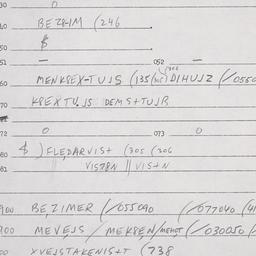 30 0
40 BEZRIM (246
$
50 —
51 — 052 —
60 MENKREX-TUJS (135(NC) DIHUJZ (/0550
70 KREXTUJS DEMSTUJR
72 0 073 0
80 $ ) FLEDARVIST (205 (206
81 VISTRN || VISTN
900 BEZIMER (/055090 (/077040 (4
900 MEVEJS / MEKREN/MEHOT (/030050
00 XVEJSTAKENISTT (738